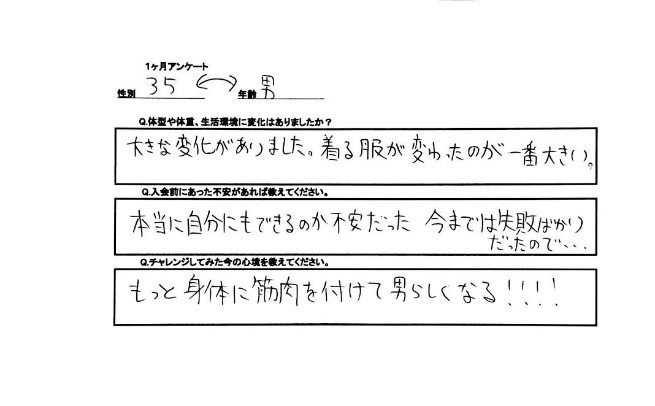 1ヶ月アンケート
性別 35 ↔ 年齢 男
Q.体型や体重、生活環境に変化はありましたか？
大きな変化がありました。着る服が変わったのが一番大きい。
Q.入会前にあった不安があれば教えてください。
本当に自分にもできるのか不安だった 今までは失敗ばかり
だったので・・・
Q.チャレンジしてみた今の心境を教えてください。
もっと身体に筋肉を付けて男らしくなる!!!!